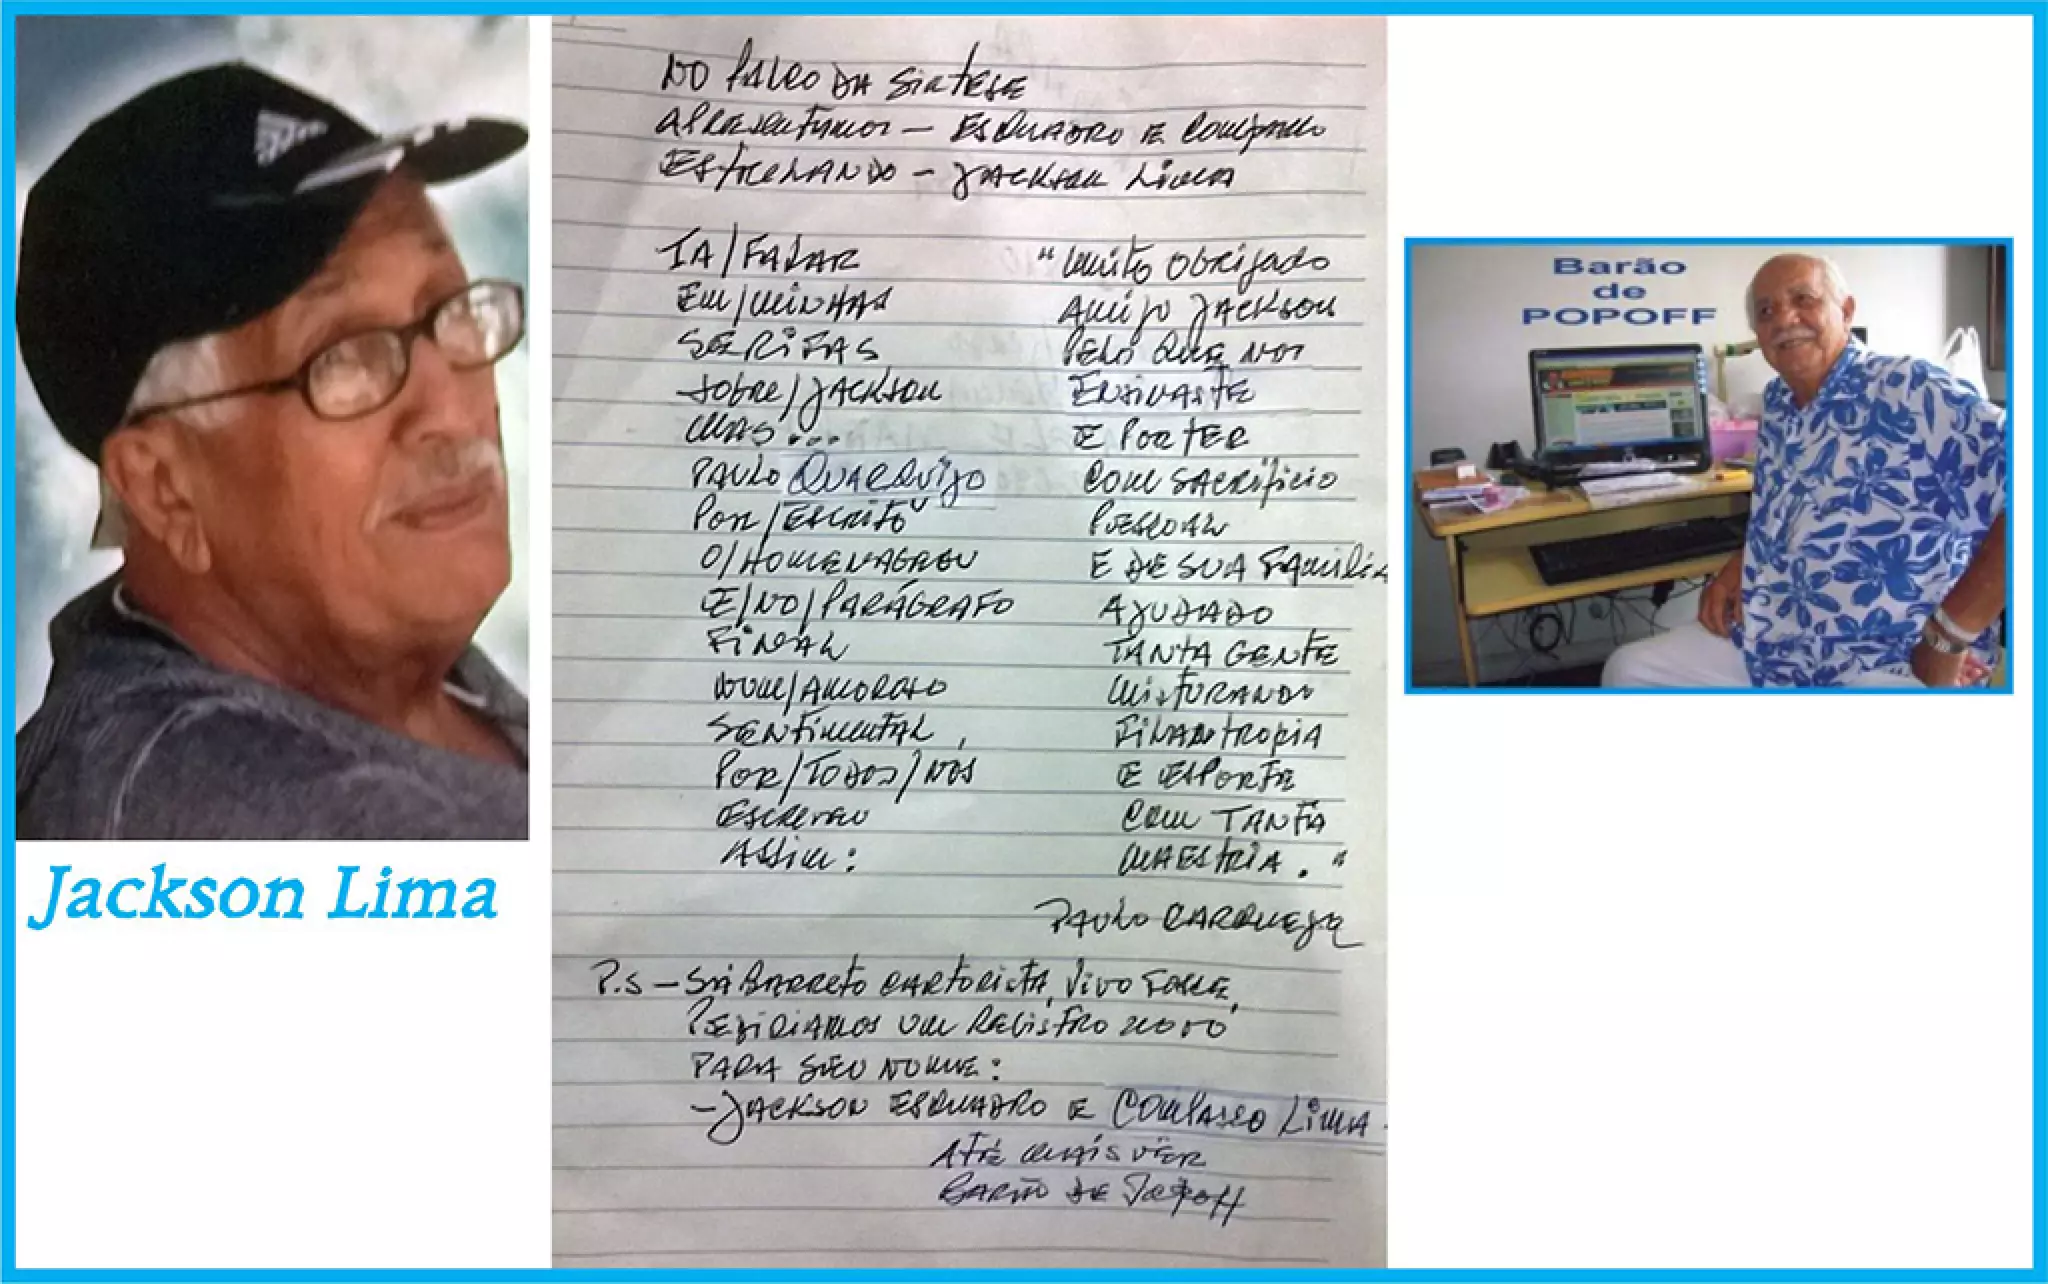 Jackson Lima
NO PALCO DA SÍNTESE
APRESENTAMOS — ESQUADRO E COMPASSO
ESTRELANDO — JACKSON LIMA
IA/FALAR
EM/MINHAS
SERIFAS
SOBRE/JACKSON
MAS....
PAULO
POR/ESCRITO
O/HOMENAGEOU
E/NO/PARÁGRAFO
FINAL
NUM/AMOROSO
SENTIMENTAL,
POR/TODOS/NÓS
ESCREVEU
ASSIM:
"MUITO OBRIGADO
AMIGO JACKSON
PELO QUE NOS
ENSINASTE
E POR TER
COM SACRIFICIO
PESSOAL
E DE SUA FAMILIA
AJUDADO
TANTA GENTE
MISTURANDO
FILANTROPIA
E ESPORTE
COM TANTA
MAESTRIA."
PAULO CARQUEJA
P.S — SÁ BARRETO CARTORISTA, VIVO FOSSE,
PEDIRIAMOS UM REGISTRO NOVO
PARA SEU NOME:
- JACKSON ESQUADRO E COMPASSO LIMA -
ATÉ MAIS VER
BARÃO DE POPOFF
Barão
de
POPOFF